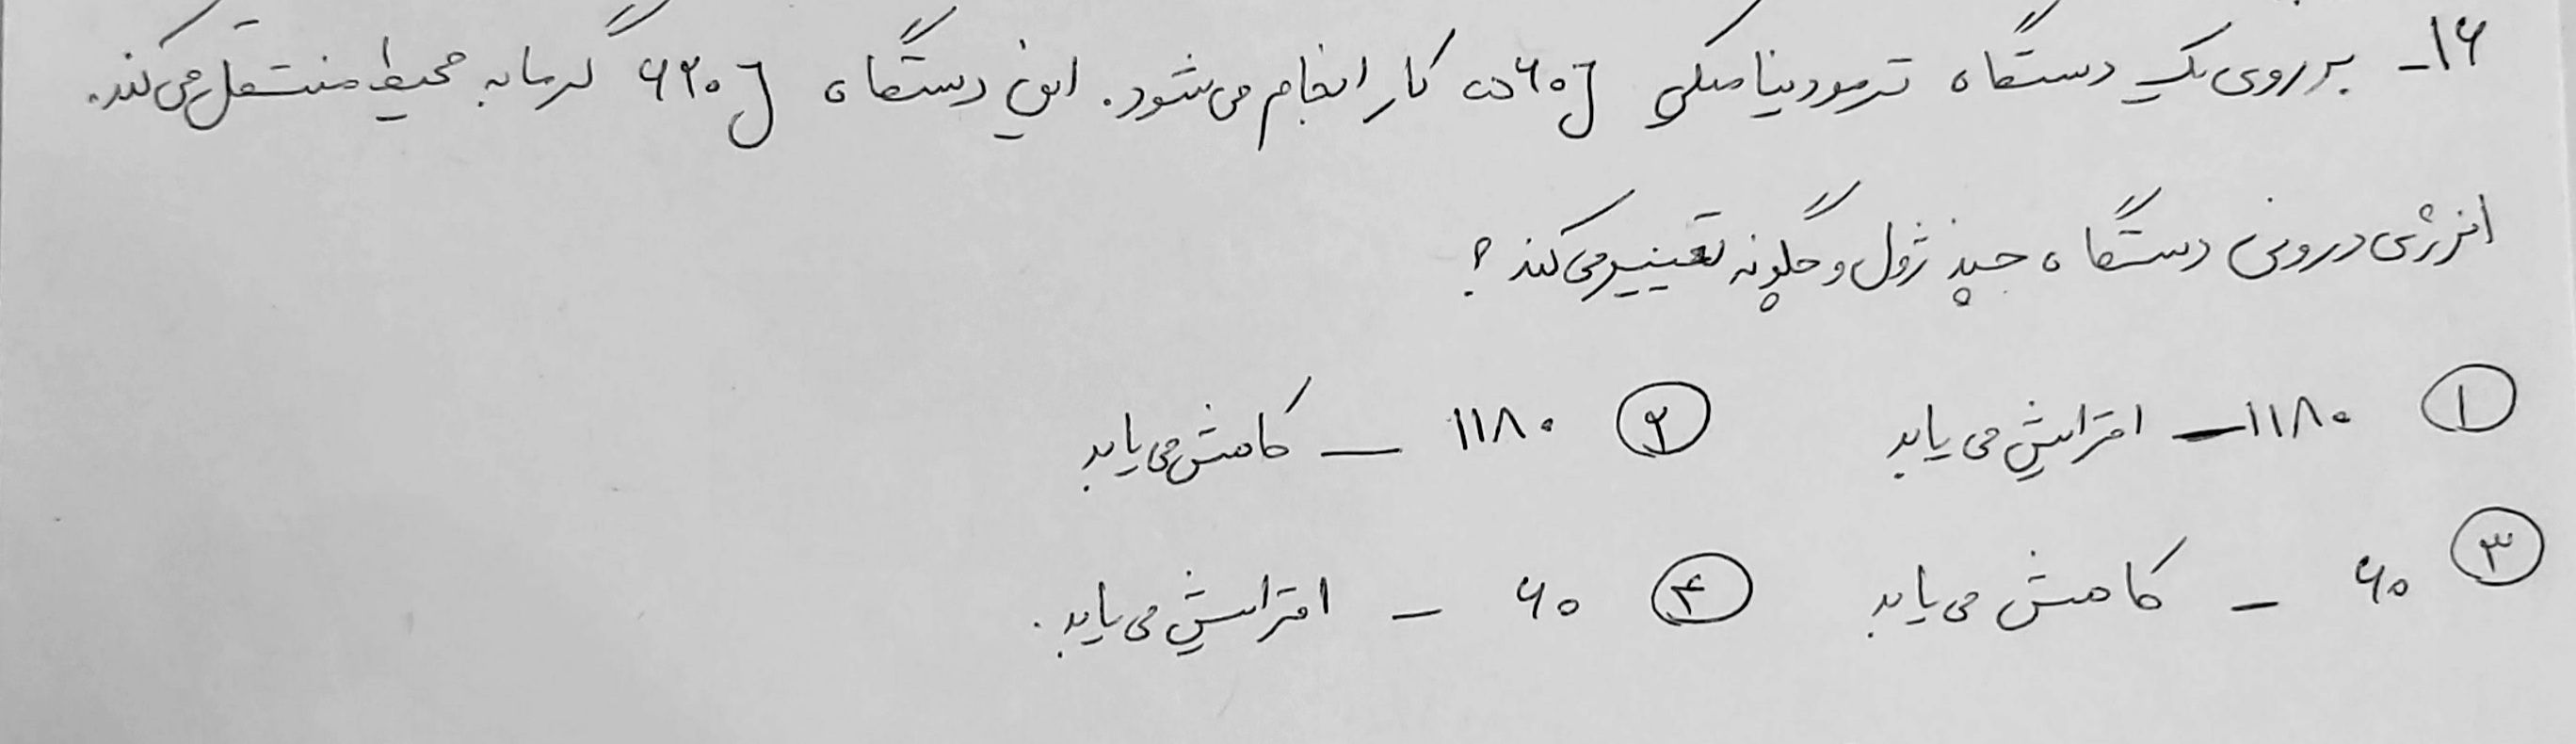 ۱۶- بر روی یک دستگاه ترمودینامیکی ۵۶۰J کار انجام می‌شود. این دستگاه ۶۲۰J گرما به محیط منتقل می‌کند.
انرژی درونی دستگاه چند ژول و چگونه تغییر می‌کند؟
① ۱۱۸۰ – افزایش می‌یابد ② ۱۱۸۰ – کاهش می‌یابد
③ ۶۰ – کاهش می‌یابد ④ ۶۰ – افزایش می‌یابد.